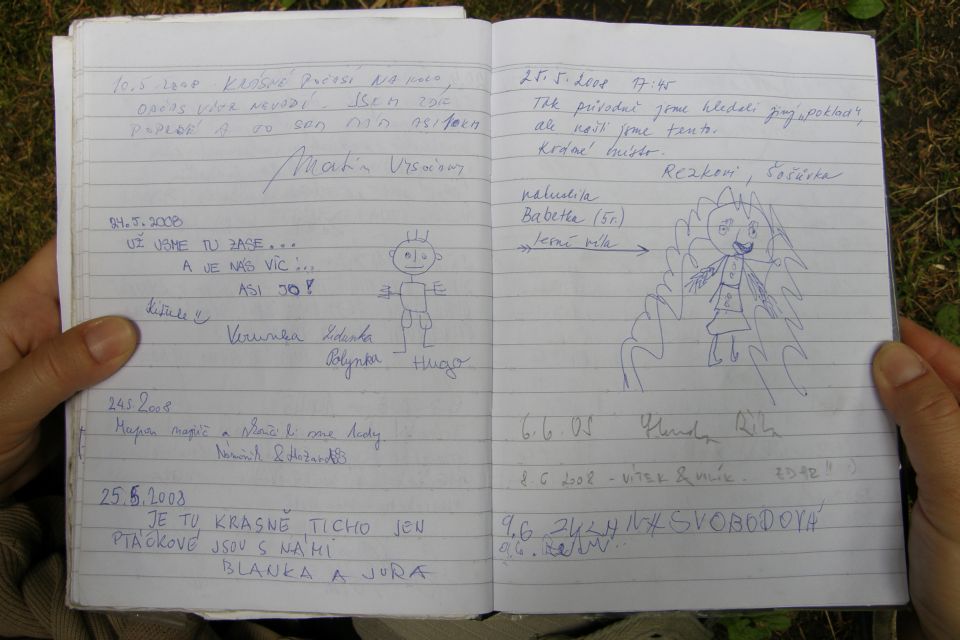 10.5.2008 KRÁSNÉ POČASÍ NA KOLO,
OBČAS VÍTR NEVADÍ. JSEM ZDE
POPRVÉ A DO SEM MÁM ASI 10KM
Martin
24.5.2008
UŽ JSME TU ZASE...
A JE NÁS VÍC!...
ASI JO!
Veronika Lidunka
Polynka Hugo
24.5.2008
a jme tady.
25.5.2008
JE TU KRÁSNĚ TICHO JEN
PTÁČKOVÉ JSOU S NÁMI
BLANKA A JURA
25.5.2008 17:45
Tak původně jsme hledali jiný „poklad“,
ale našli jsme tento.
Krásné místo.
Rezkovi, Šošůvka
nakreslila
Babetka (5r.)
lesní víla
6.6.08
8.6 2008 - VÍTEK & VILÍK. ZDAR!! :)
9.6 SVOBODOVÁ
9.6.